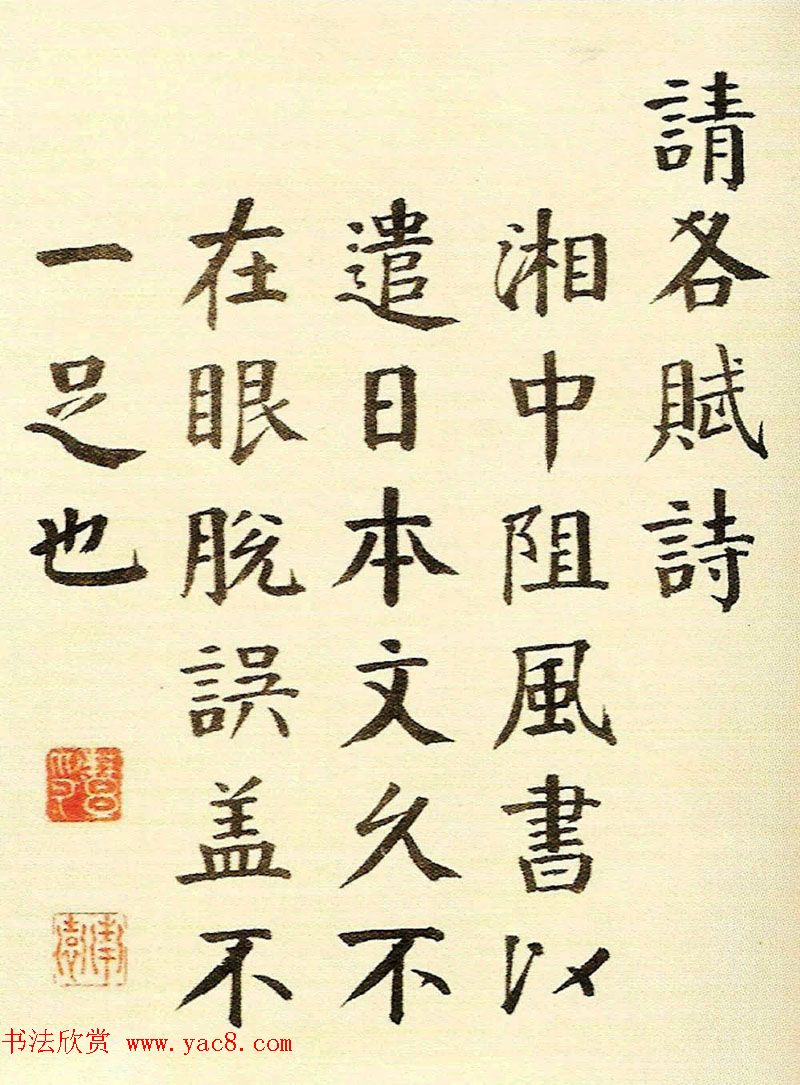 請各賦詩
湘中阻風書以
遣日本文久不
在眼脫誤盖不
一足也
书法欣赏 www.yac8.com